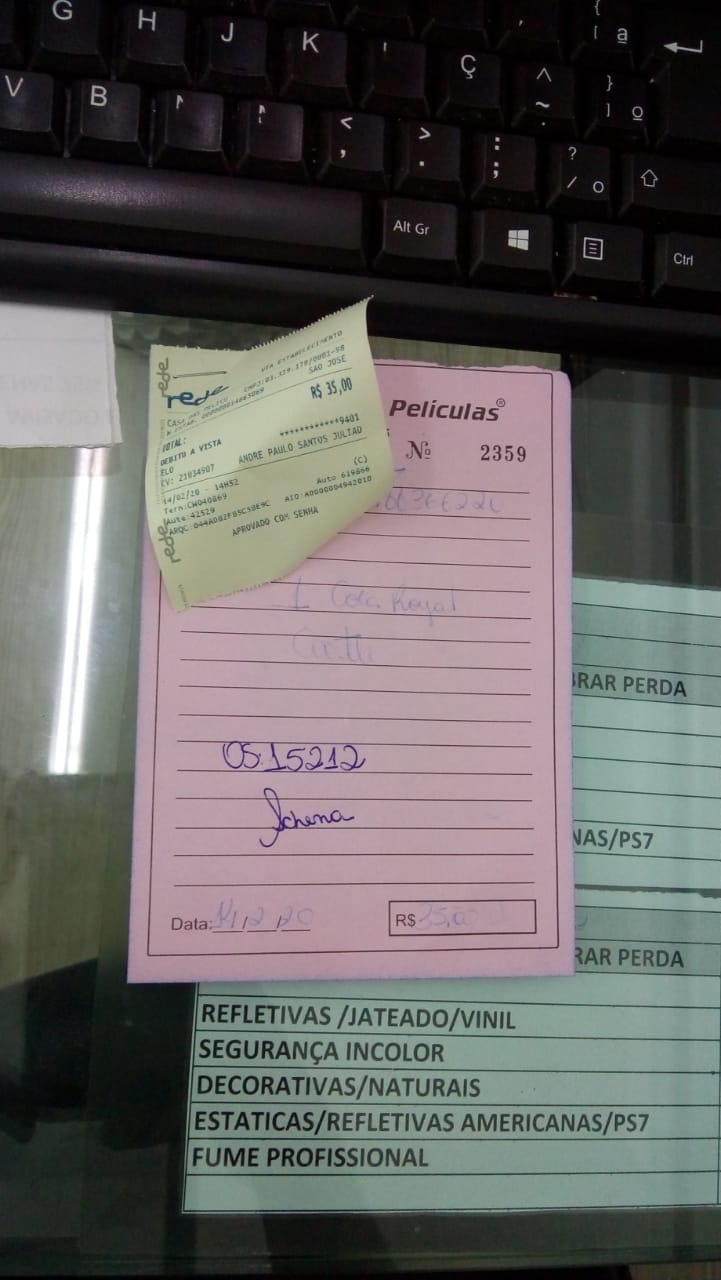 G H J K Ç ^ ~ { [ ª } ] º
V B < , > . : ; ? / °
Alt Gr Ctrl
rede
VIA ESTABELECIMENTO
SAO JOSE
R$ 35,00
TOTAL:
DEBITO A VISTA
ELO ************9401
CV: 21034907 ANDRE PAULO SANTOS JULIAO
14/02/20 - 14H52 (C)
Term:CW040869 Auto 619866
Aute:42529 AID:A0000004942010
APROVADO COM SENHA
rede
rede
Películas®
Nº 2359
1 Cola Royal
05.15212
Data: 14/2/20
R$ 35,00
BRAR PERDA
NAS/PS7
RAR PERDA
REFLETIVAS /JATEADO/VINIL
SEGURANÇA INCOLOR
DECORATIVAS/NATURAIS
ESTATICAS/REFLETIVAS AMERICANAS/PS7
FUME PROFISSIONAL